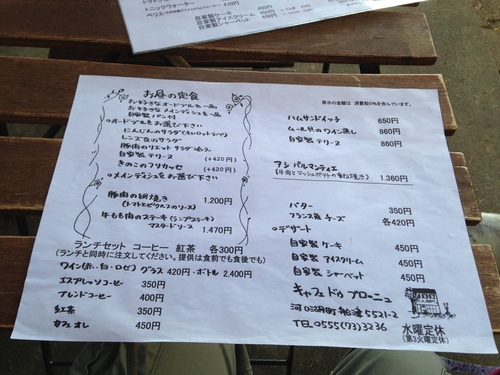 トニックウォーター 470円
自家製ケーキ
自家製アイスクリーム
自家製シャーベット
お昼の定食
お好きなオードブルを一品
お好きなメインディシュを一品
自家製パン付
◦オードブルをお選び下さい
にんじんのサラダ(キャロットラペ)
レンズ豆のサラダ
豚肉のリエット サラダ添え
自家製テリーヌ (+420円)
きのこのフリカッセ (+420円)
◦メインディシュをお選び下さい
豚肉の網焼き 1.200円
(トマトとピクルスのソース)
牛もも肉のステーキ(ランプステーキ)
マスタードソース 1.470円
ランチセット コーヒー 紅茶 各300円
(ランチと同時に注文してください。提供は食前でも食後でも)
ワイン(赤・白・ロゼ) グラス 420円・ボトル 2.400円
エスプレッソコーヒー 350円
ブレンドコーヒー 400円
紅茶 350円
カフェオレ 450円
表示の金額は 消費税5%を含んでいます。
ハムサンドイッチ 650円
ムール貝のワイン蒸し 860円
自家製 テリーヌ 860円
アシ パルマンティエ
(牛肉とマッシュポテトの重ね焼き) 1.360円
バター 350円
フランス産 チーズ 各420円
◦デザート
自家製 ケーキ 450円
自家製 アイスクリム 450円
自家製 シャーベット 450円
キャフェ ドゥ ブローニュ
河口湖町船津5521-2
TEL 0555(73)3236
水曜定休
(第3火曜定休)